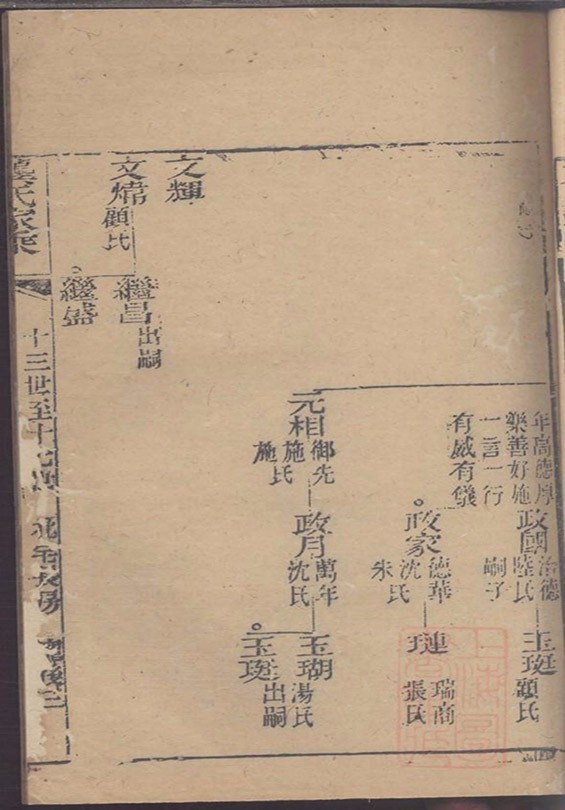 年高德厚
樂善好施
一言一行
有威有儀
政國
治德
陸氏
嗣子
玉珽
顧氏
政家
德華
沈氏
朱氏
璉
瑞商
張氏
元相
御先
施氏
施氏
政月
萬年
沈氏
玉瑚
湯氏
玉珽
出嗣
文輝
文煒
顧氏
繼昌
出嗣
繼盛
氏家乘
十三世至十七世